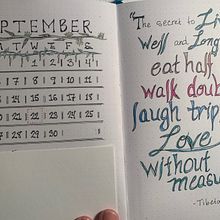 PTEMBER
T W T F S
1 2 3 4
7 8 9 10 11
14 15 16 17 18
21 22 23 24 25
28 29 30
"The secret to Li
Well and Long
eat half
walk doub
laugh trip
Love
without
measu
- Tibeta